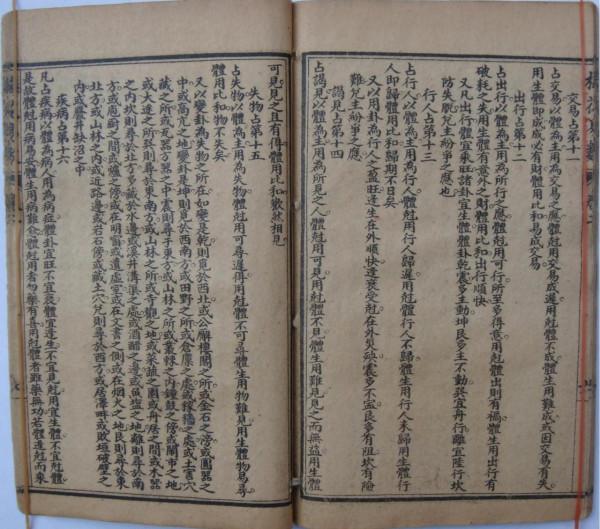 交易占第十一
占交易以體為主用為交易之應體尅用交易成遲用尅體不成體生用難成或因交易有失
用生體即成成必有財體用比和易成交易
出行占第十二
占出行以體為主用為所行之應體尅用可行所至多得意用尅體出則有禍體生用出行有
破耗之失用生體有意外之財體用比和出行順快
又凡出行體宜乘旺諸卦宜生體體卦乾震多主動坤艮多主不動巽宜舟行離宜陸行坎
防失脫兌主紛爭之應也
行人占第十三
占行人以體為主用為行人體尅用行人歸遲用尅體行人不歸體生用行人未歸用生體行
人即歸體用比和歸期不日矣
又以用卦為行人之盈旺逢生在外順快逢衰受尅在外災殃震多不寧艮多有阻坎有險
難兌主紛爭之應
謁見占第十四
占謁見以體為主用為所見之人體尅用可見用尅體不見體生用難見見之而無益用生體
可見見之且有得體用比和歡然相見
失物占第十五
占失物以體為主用為失物體尅用可尋遲得用尅體不可尋體生用物難見用生體物易尋
體用比和物不失矣
又以變卦為失物之所在如變是乾則覓於西北或公廨樓閣之所或金石之傍或圓器之
中或高亢之地變卦是坤則覓於西南方或田野之所或倉廩之處或稼穡之處或土窖穴
藏之所或瓦器方器之中震則尋於東方或山林之所或叢棘之內鐘鼓之傍或鬧市之地
或大途之所巽則尋於東南方或山林之所或寺觀之地或菜蔬之園或舟居之間或木器
之內坎則尋於北方多藏於水邊或溪井溝渠之處或酒醋之邊或魚鹽之地離則尋於南
方或庖廚之間或爐之傍或在明窗或遺虛室或在文書之側或在烟火之地艮則尋於東
北方或山林之內或近路邊或岩石傍或藏土穴兌則尋於西方或居澤畔或敗垣破壁之
內或廢井缺沼之中
疾病占第十六
凡占疾病以體為病人用為病症體卦宜旺不宜衰體宜逢生不宜見尅用宜生體不宜尅體
是故體尅用病易安體生用病難愈體尅用者勿藥有喜用尅體者雖藥無功若體逢尅而乘